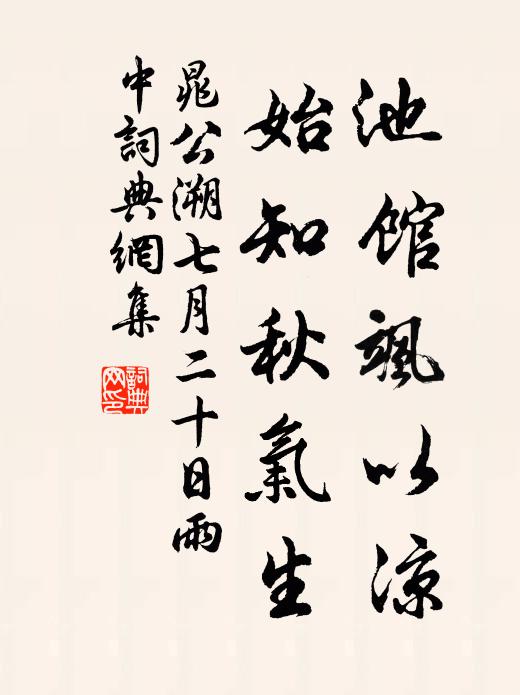 池館颯以涼
始知秋氣生
晁公溯七月二十日雨
中詞典網集
詞典
网印